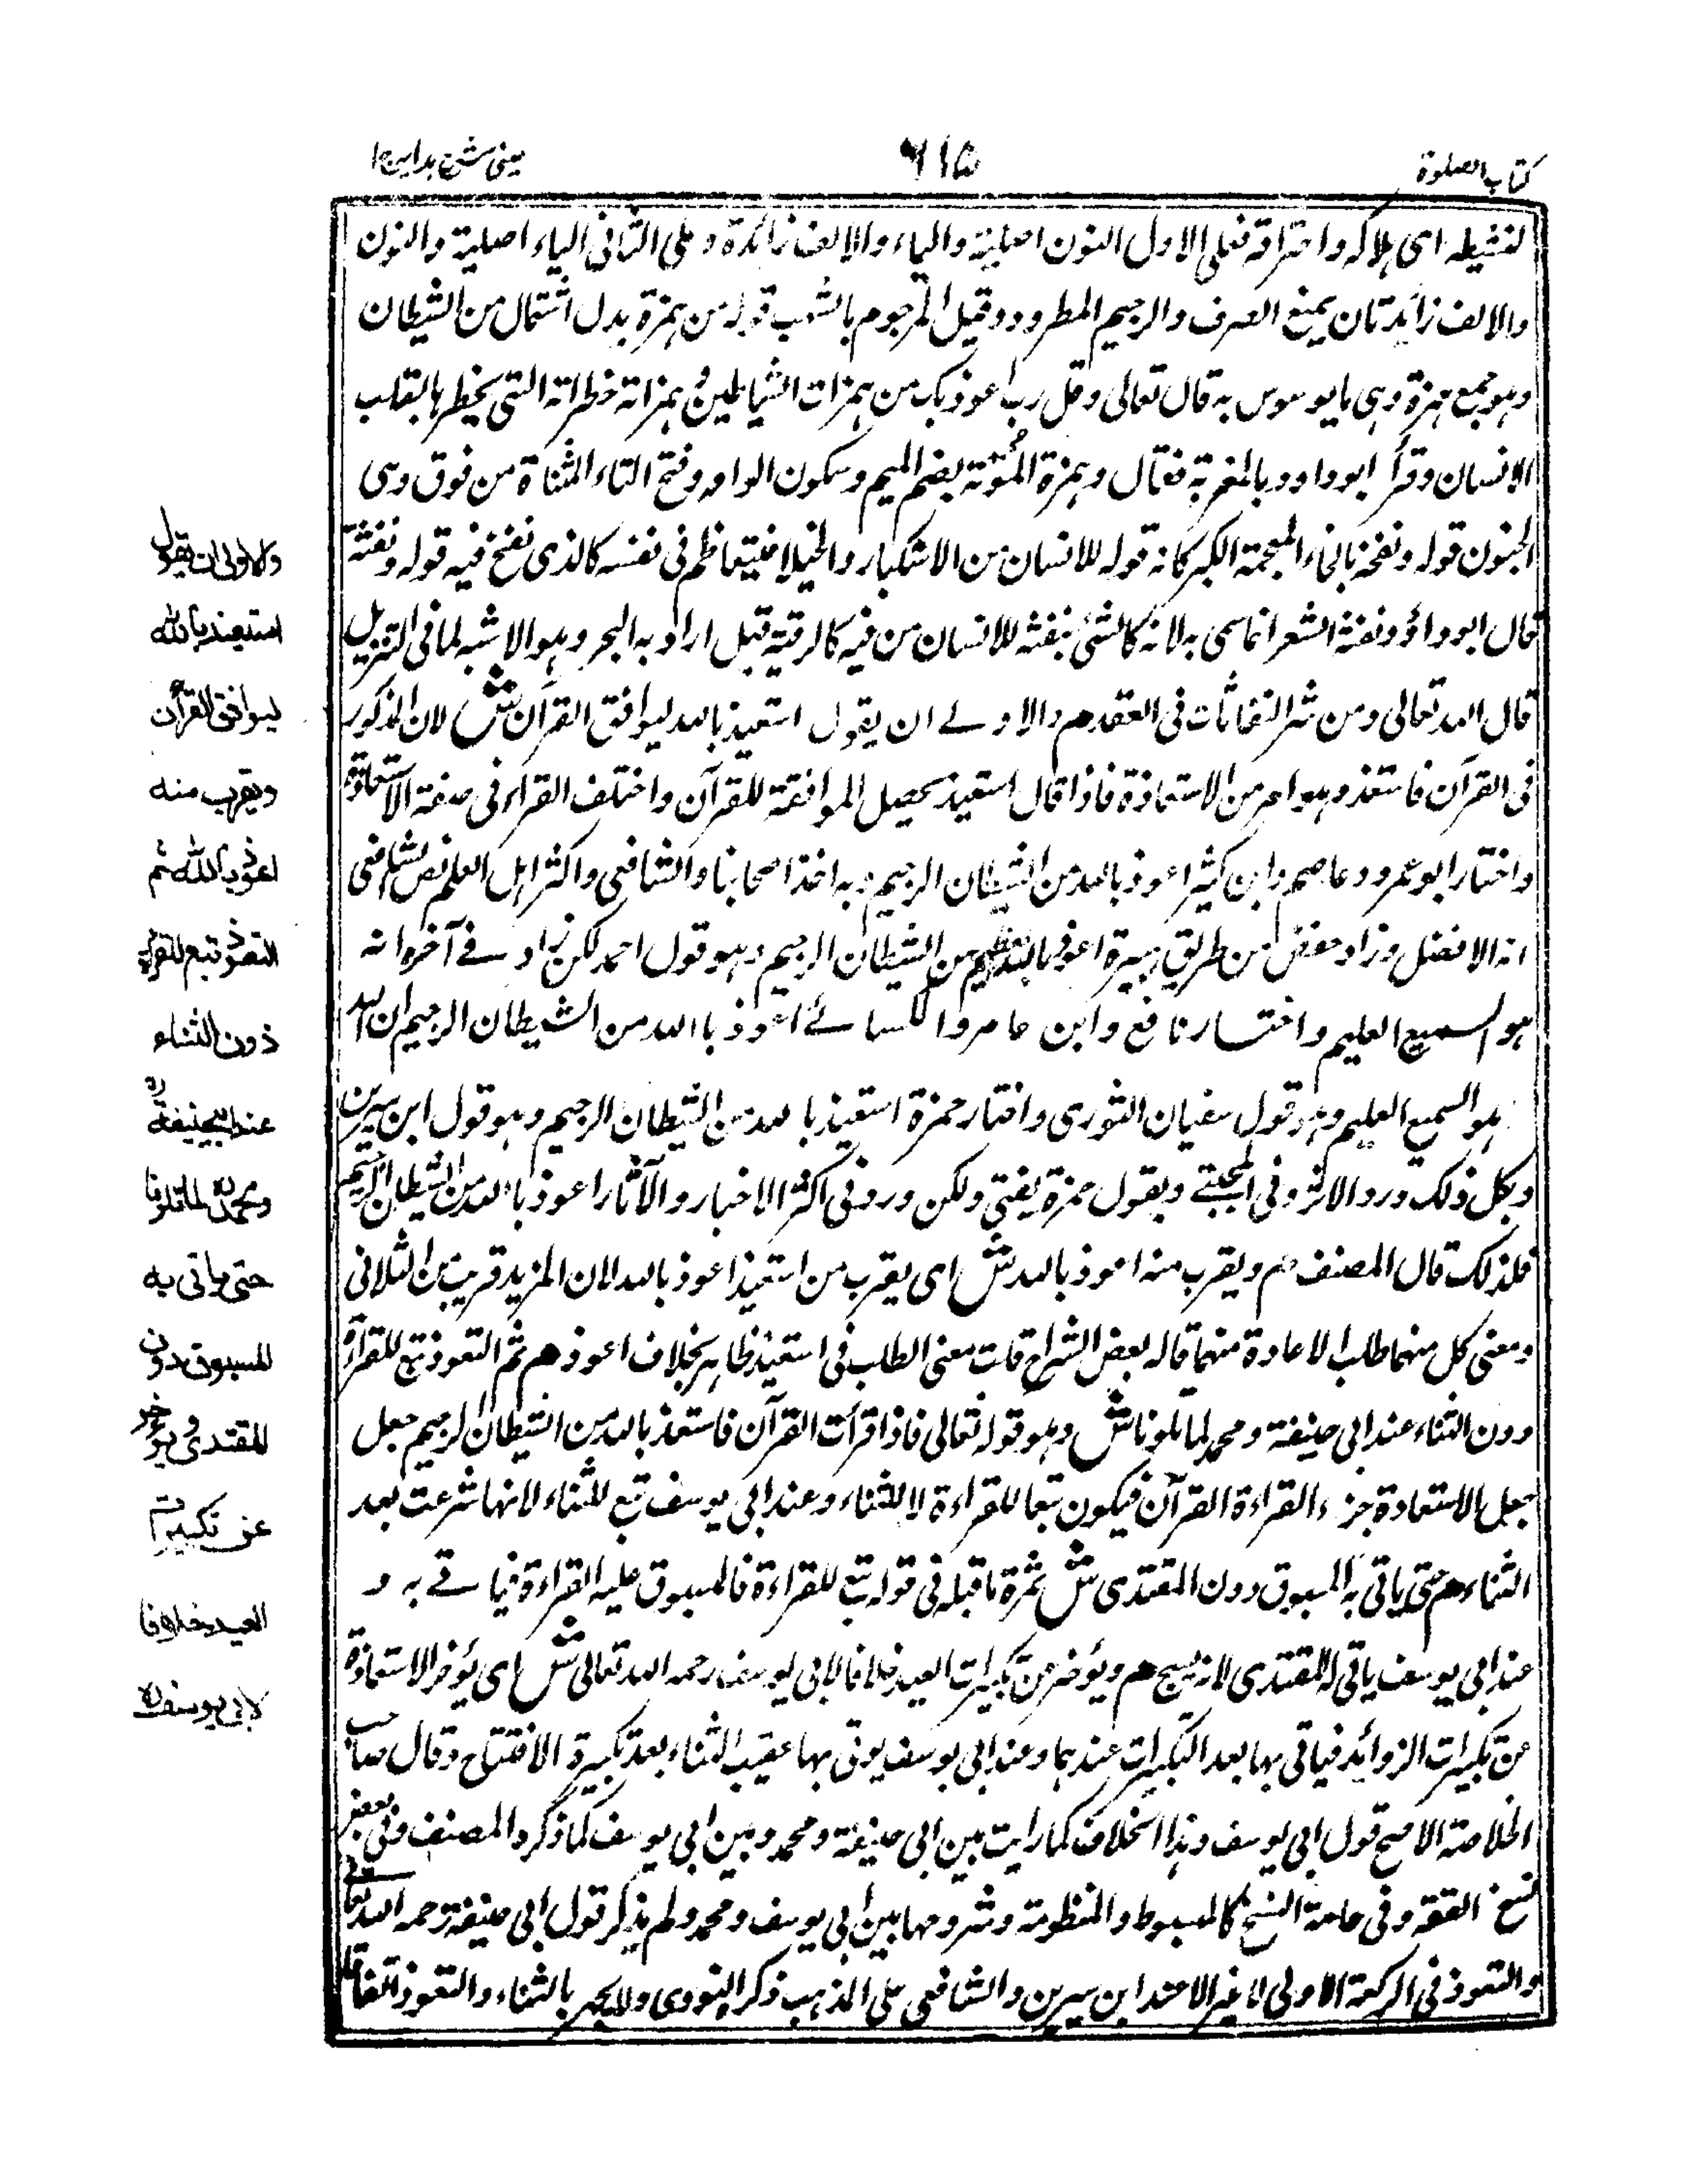 كتاب الصلوة
٦١٥
عينى شرح هداية ج١
لتشيطه اى هلاكه واحتراقه فعلى الاول النون اصلية والياء والالف زائدة وعلى الثانى الياء اصلية والنون
والالف زائدتان يمنع الصرف والرجيم المطرود وقيل المرجوم بالشهب قوله من همزة بدل اشتمال من الشيطان
وهو جمع همزة وهى ما يوسوس به قال تعالى وقل رب اعوذ بك من همزات الشياطين وهمزاته خطراته التى يخطرها بقلب
الانسان وقرأ ابو داود بالمغربة فقال وهمزة المُوتة بضم الميم وسكون الواو وفتح التاء المثناة من فوق وهى
الجنون قوله ونفخه بالخاء المعجمة الكبر كانه قوله للانسان من الاستكبار والخيلا فيتعاظم فى نفسه كالذى نفخ فيه قوله ونفثه
قال ابو داؤد ونفثه الشعر انما سمى به لانه كالشئ ينفثه للانسان من فيه كالرقية قيل اراد به السحر وهو الاشبه لما فى التنزيل
قال الله تعالى ومن شر النفاثات فى العقد هم والاولے ان يقول استعيذ بالله ليوافق القرآن ش لان المذكور
فى القرآن فاستعذ وهو امر من الاستعاذة فاذا قال استعيذ يحصل الموافقة للقرآن واختلف القراء فى صفة الاستعاذة
واختار ابو عمرو وعاصم وابن كثير اعوذ بالله من الشيطان الرجيم وبه اخذ اصحابنا والشافعى واكثر اهل العلم نص الشافعى
انه الافضل وزاد حفص من طريق هبيرة اعوذ بالله العظيم من الشيطان الرجيم وهو قول احمد لكن زاد فے آخره انه
هو السميع العليم واختار نافع وابن عامر والكسائے اعوذ بالله من الشيطان الرجيم ان الله
هو السميع العليم وهو قول سفيان الثورى واختار حمزة استعيذ بالله من الشيطان الرجيم وهو قول ابن سيرين
وبكل ذلك ورد الاثر وفى المجتبے وبقول حمزة يفتى ولكن ورد فى اكثر الاخبار والآثار اعوذ بالله من الشيطان الرجيم
فلذلك قال المصنف هم ويقرب منه اعوذ بالله ش اى يقرب من استعيذ اعوذ بالله لان المزيد قريب من الثلاثى
ومعنى كل منهما طلب الاعاذة منهما قاله بعض الشراح قلت معنى الطلب فى استعيذ ظاهر بخلاف اعوذ هم ثم التعوذ تبع للقرآءة
دون الثناء عند ابى حنيفة ومحمد لما تلونا ش وهو قوله تعالى فاذا قرأت القرآن فاستعذ بالله من الشيطان الرجيم جعل
جعل الاستعاذة جزء القراءة القرآن فيكون تبعا للقراءة لا للثناء وعند ابى يوسف تبع للثناء لانها شرعت بعد
الثناء هم حتى ياتى به المسبوق دون المقتدى ش ثمرة ما قبله فى قوله تبع للقراءة فالمسبوق عليه القراءة فياتے به و
عند ابى يوسف ياتى له المقتدى لانه يسبح هم ويؤخر عن تكبيرات العيد خلافا لابى يوسف رحمه الله تعالى ش اى يؤخر الاستعاذة
عن تكبيرات الزوائد فياتى بها بعد التكبيرات عندهما وعند ابى يوسف يوتى بها عقيب الثناء بعد تكبيرة الافتتاح وقال صاحب
الخلاصة الاصح قول ابى يوسف وهذا الخلاف كما رايت بين ابى حنيفة ومحمد وبين ابى يوسف كما ذكره المصنف وفى بعض
نسخ الفقه وفى عامة النسخ كالمبسوط والمنظومة وشروحها بين ابى يوسف ومحمد ولم يذكر قول ابى حنيفة رحمه الله تعالى
والتعوذ فى الركعة الاولى لا غير الا عند ابن سيرين والشافعى على المذهب ذكر النووى ولا يجهر بالثناء والتعوذ اتفاقا
والاولى ان يقول
استعيذ بالله
ليوافق القرآن
ويقرب منه
اعوذ بالله ثم
التعوذ تبع للقراءة
دون الثناء
عند ابيحنيفة رح
ومحمد رح لما تلونا
حتى ياتى به
المسبوق دون
المقتدى ويؤخر
عن تكبيرات
العيد خلافا
لابى يوسف رح